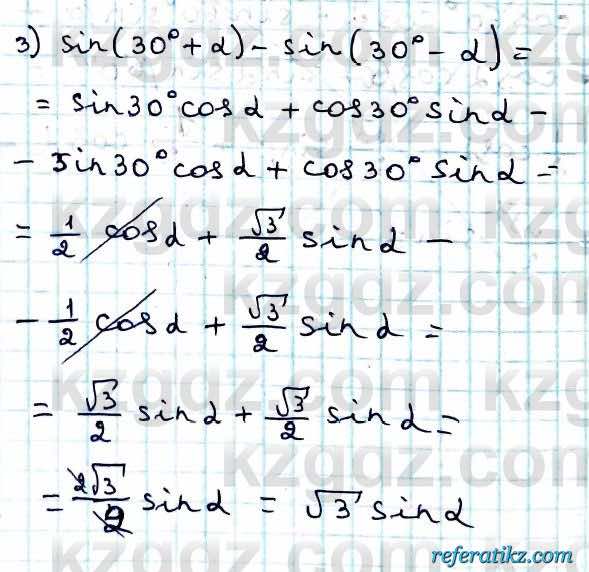 3) sin(30°+α) - sin(30° - α) =
= sin30°cosα + cos30°sinα -
- sin30°cosα + cos30° sinα =
= 1/2 cosα + √3/2 sinα -
- 1/2 cosα + √3/2 sinα =
= √3/2 sinα + √3/2 sinα =
= 2√3/2 sinα = √3 sinα
kzgdz.com
referatikz.com